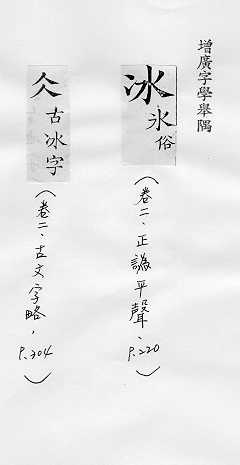 增廣字學舉隅
冰 氷俗
（卷二、正譌平聲，P.220）
仌 古冰字
（卷二、古文字略，P.304）